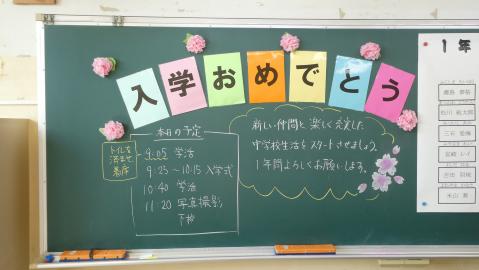 入学おめでとう
本日の予定
9:05 学活
9:25~10:15 入学式
10:40 学活
11:20 写真撮影
下校
トイレを
済ませ
着席
新しい仲間と楽しく充実した
中学校生活をスタートさせましょう。
1年間よろしくお願いします。
1年